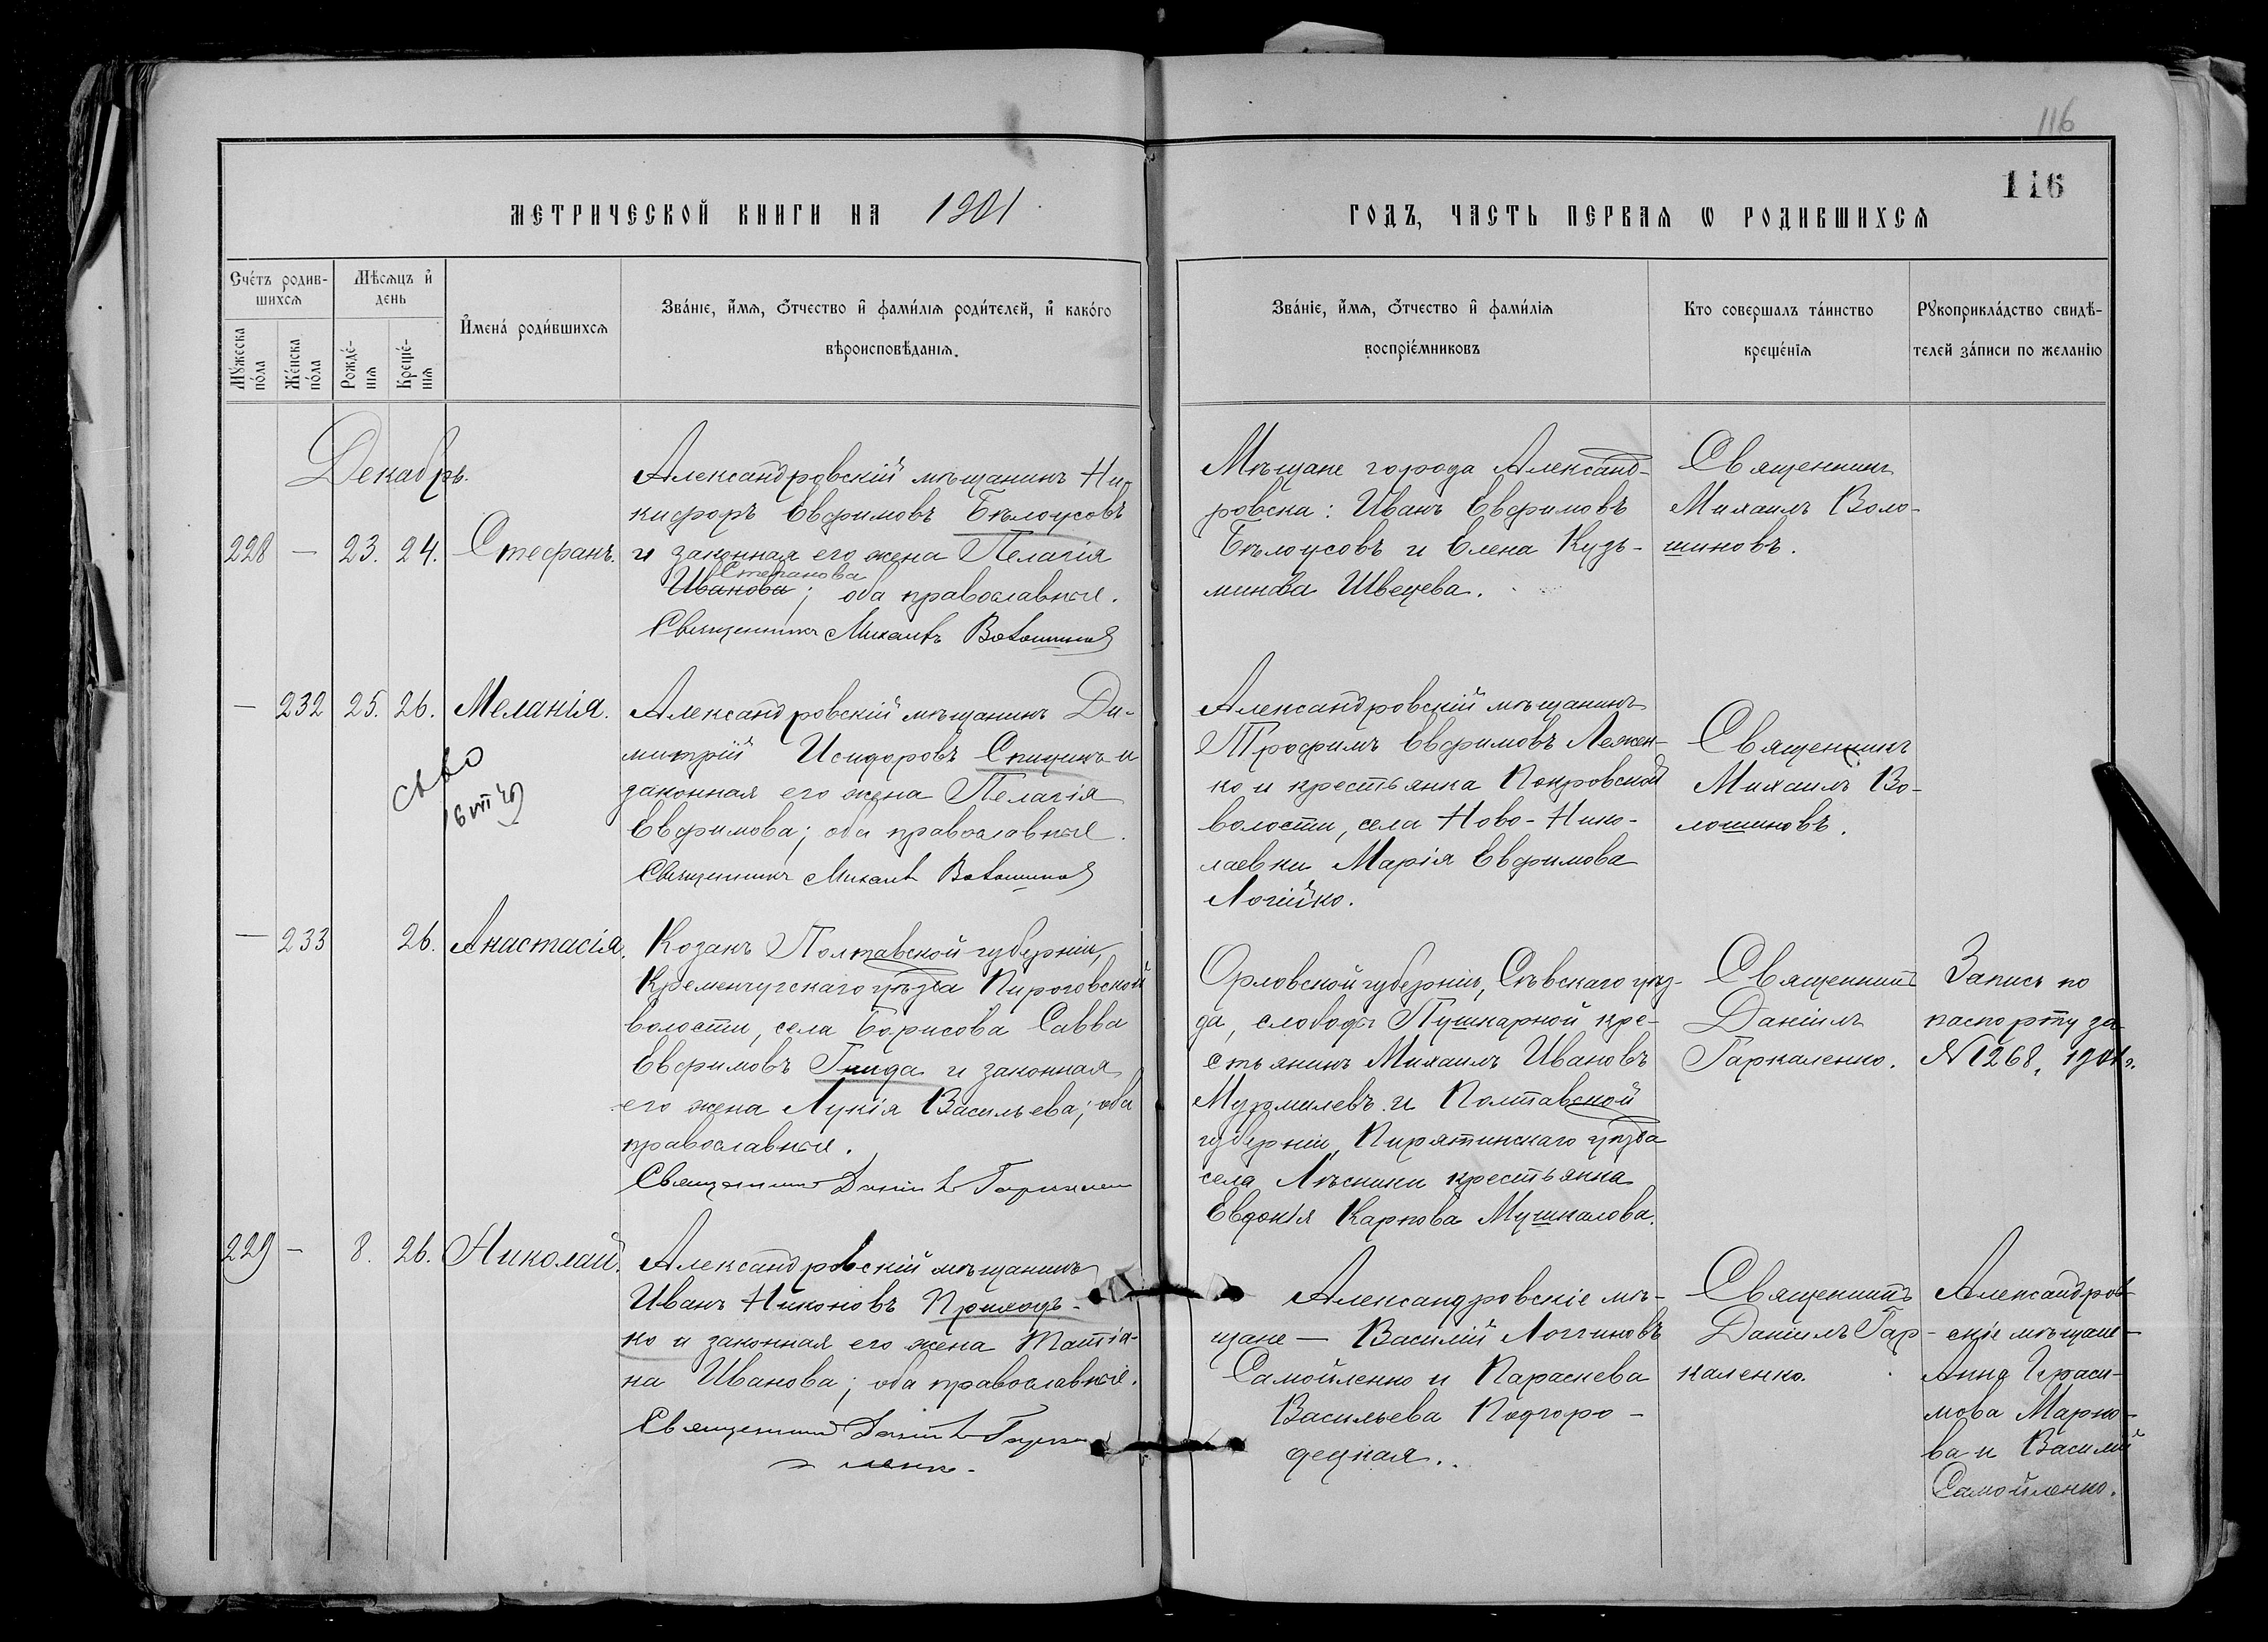 116
116
МЕТРИЧЕСКОЙ КНИГИ НА 1901
ГОДЪ, ЧАСТЬ ПЕРВАѦ Ѡ РОДИВШИХСѦ
Счетъ родив-
шихсѧ
Мѣсѧцъ и
день
Мꙋжеска
пола
Женска
пола
Рожде-
нїѧ
Креще-
нїѧ
Имена родившихсѧ
Званїе, имѧ, ѻтчество и фамилїѧ родителей, и какого
вѣроисповѣданїѧ.
Званїе, имѧ, ѻтчество и фамилїѧ
воспрїемниковъ
Кто совершалъ таинство
крещенїѧ
Рꙋкоприкладство свидѣ-
телей записи по желанїю
Декабрь.
228 — 23. 24. Стефанъ.
Александровскій мѣщанинъ Ни-
кифоръ Евфимовъ Бѣлоусовъ
и законная его жена Пелагія
Степанова
Иванова; оба православные.
Священникъ Михаилъ Волошиновъ
Мѣщане города Александ-
ровска: Иванъ Евфимовъ
Бѣлоусовъ и Елена Кузь-
минова Швецева.
Священникъ
Михаилъ Воло-
шиновъ.
— 232 25. 26. Меланія.
Александровскій мѣщанинъ Ди-
митрій Исидоровъ Спицинъ и
законная его жена Пелагія
Евфимова; оба православные.
Священникъ Михаилъ Волошиновъ
Александровскій мѣщанинъ
Трофимъ Евфимовъ Лежен-
ко и крестьянка Покровской
волости, села Ново-Нико-
лаевки Марія Евфимова
Логійко.
Священникъ
Михаилъ Во-
лошиновъ.
— 233 26. Анастасія.
Козакъ Полтавской губерніи,
Кременчугскаго уѣзда Пироговской
волости, села Борисова Савва
Евфимовъ Гнида и законная
его жена Лукія Васильева; оба
православные.
Священникъ Даніилъ Гаркаленко
Орловской губерніи, Сѣвскаго уѣз-
да, слободы Пушкарной кре-
стьянинъ Михаилъ Ивановъ
и Полтавской
губерніи, Пирятинскаго уѣзда
села Лѣсники крестьянка
Евдокія Карпова Мушкалова.
Священникъ
Даніилъ
Гаркаленко.
Запись по
паспорту за
№1268, 1901г.
229 — 8. 26. Николай.
Александровскій мѣщанинъ
Иванъ Никоновъ Приходь-
ко и законная его жена Татіа-
на Иванова; оба православные.
Священникъ Даніилъ Гарка-
ленко.
Александровскіе мѣ-
щане — Василій Логгиновъ
Самойленко и Параскева
Васильева Подгоро-
децкая.
Священникъ
Даніилъ Гар-
каленко.
Александров-
скіе мѣщане —
Анна Гераси-
мова Марко-
ва и Василій
Самойленко.